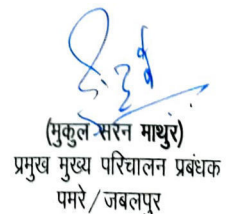 (मुकुल सरन माथुर)
प्रमुख मुख्य परिचालन प्रबंधक
पमरे/जबलपुर